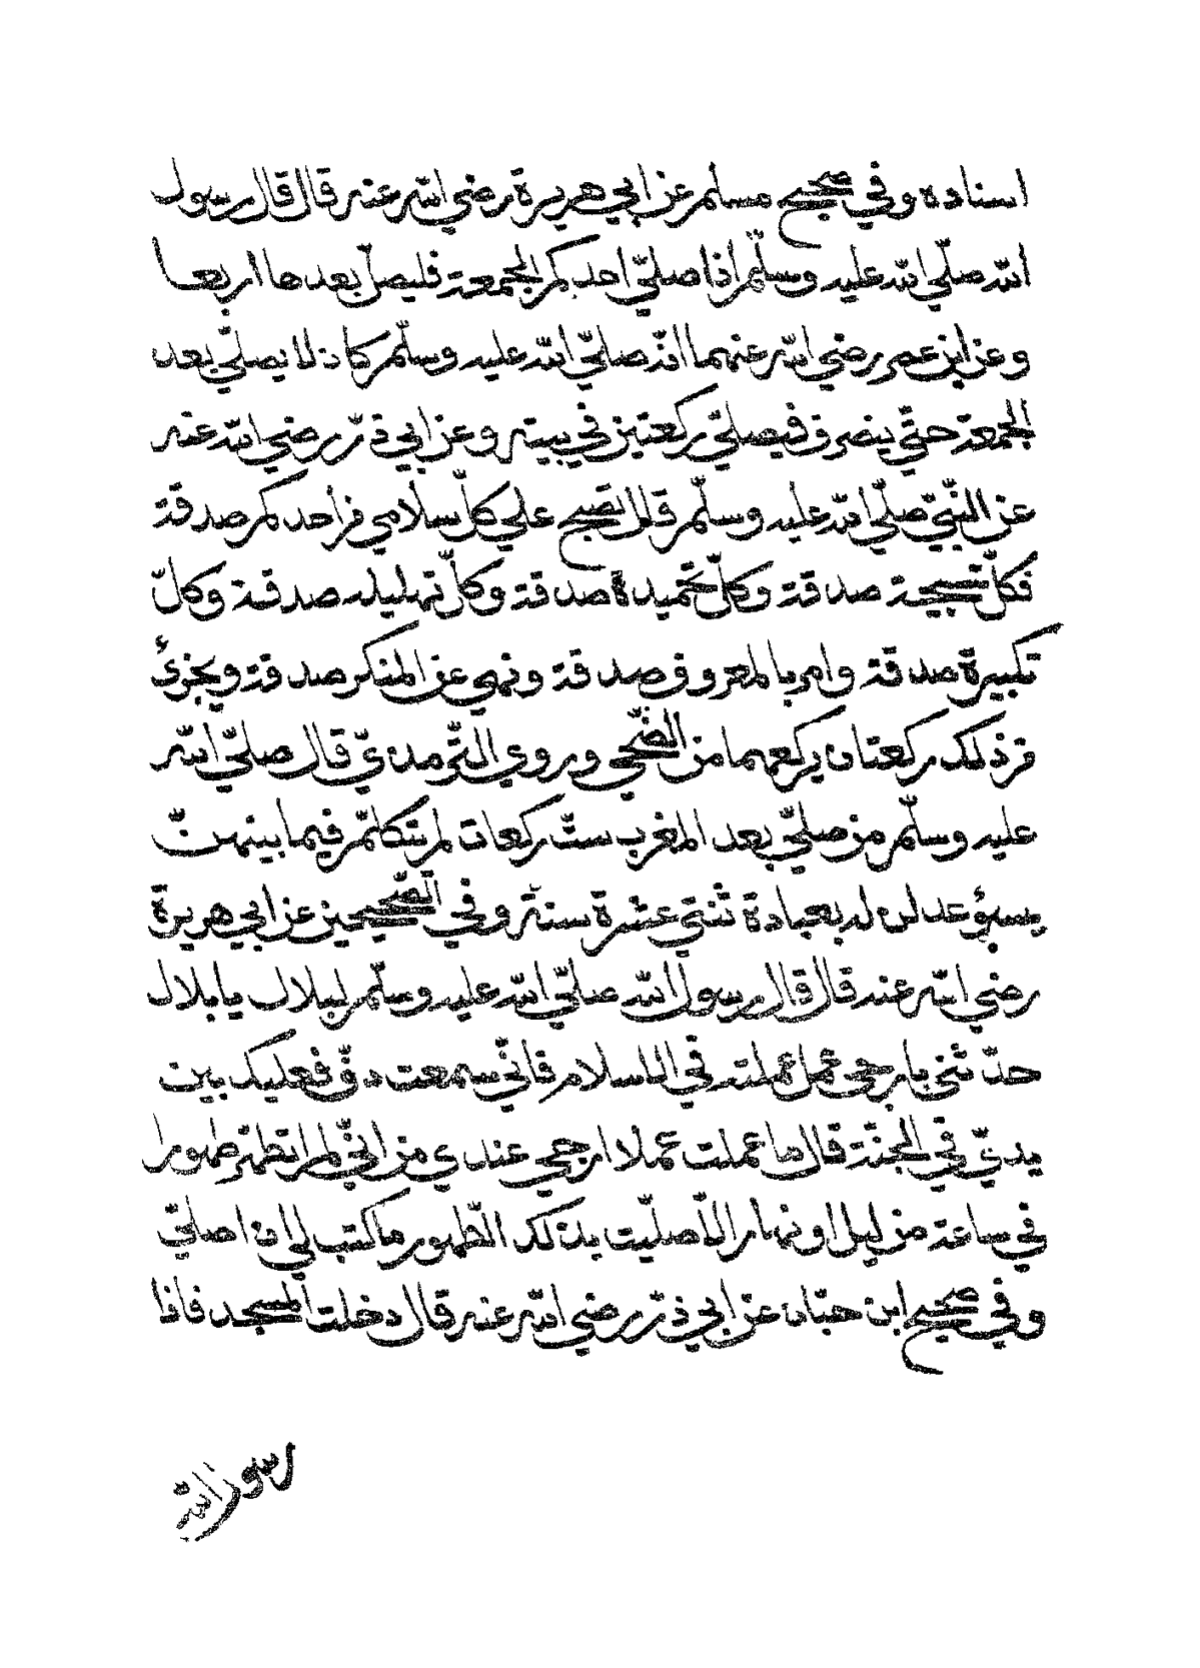 اسناده وفي صحيح مسلم عن ابي هريرة رضي الله عنه قال قال رسول
الله صلّي الله عليه وسلّم اذا صلّي احدكم الجمعة فليصلّ بعدها اربعا
وعن ابن عمر رضي الله عنهما انّه صلّي الله عليه وسلّم كان لا يصلّي بعد
الجمعة حتّي ينصرف فيصلّي ركعتين في بيته وعن ابي ذرّ رضي الله عنه
عن النّبيّ صلّي الله عليه وسلّم قال يصبح علي كلّ سلامي من أحدكم صدقة
فكلّ تسبيحة صدقة وكلّ تحميدة صدقة وكلّ تهليله صدقة وكلّ
تكبيرة صدقة وامر بالمعروف صدقة ونهي عن المنكر صدقة ويجزئ
من ذلك ركعتان يركعهما من الضّحي وروي التّرمذيّ قال صلّي الله
عليه وسلّم من صلّي بعد المغرب ستّ ركعات لم يتكلّم فيما بينهنّ
بسوء عدلن له بعبادة ثنتي عشرة سنة وفي الصّحيحين عن ابي هريرة
رضي الله عنه قال قال رسول الله صلّي الله عليه وسلّم لبلال يا بلال
حدّثني بارجي عمل عملته في الاسلام فانّي سمعت دفّ نعليك بين
يديّ في الجنّة قال ما عملت عملا ارجي عندي من انّي لم اتطهّر طهورا
في ساعة من ليل او نهار الّا صلّيت بذلك الطّهور ما كتب لي ان اصلّي
وفي صحيح ابن حبّان عن ابي ذرّ رضي الله عنه قال دخلت المسجد فاذا
رسول الله